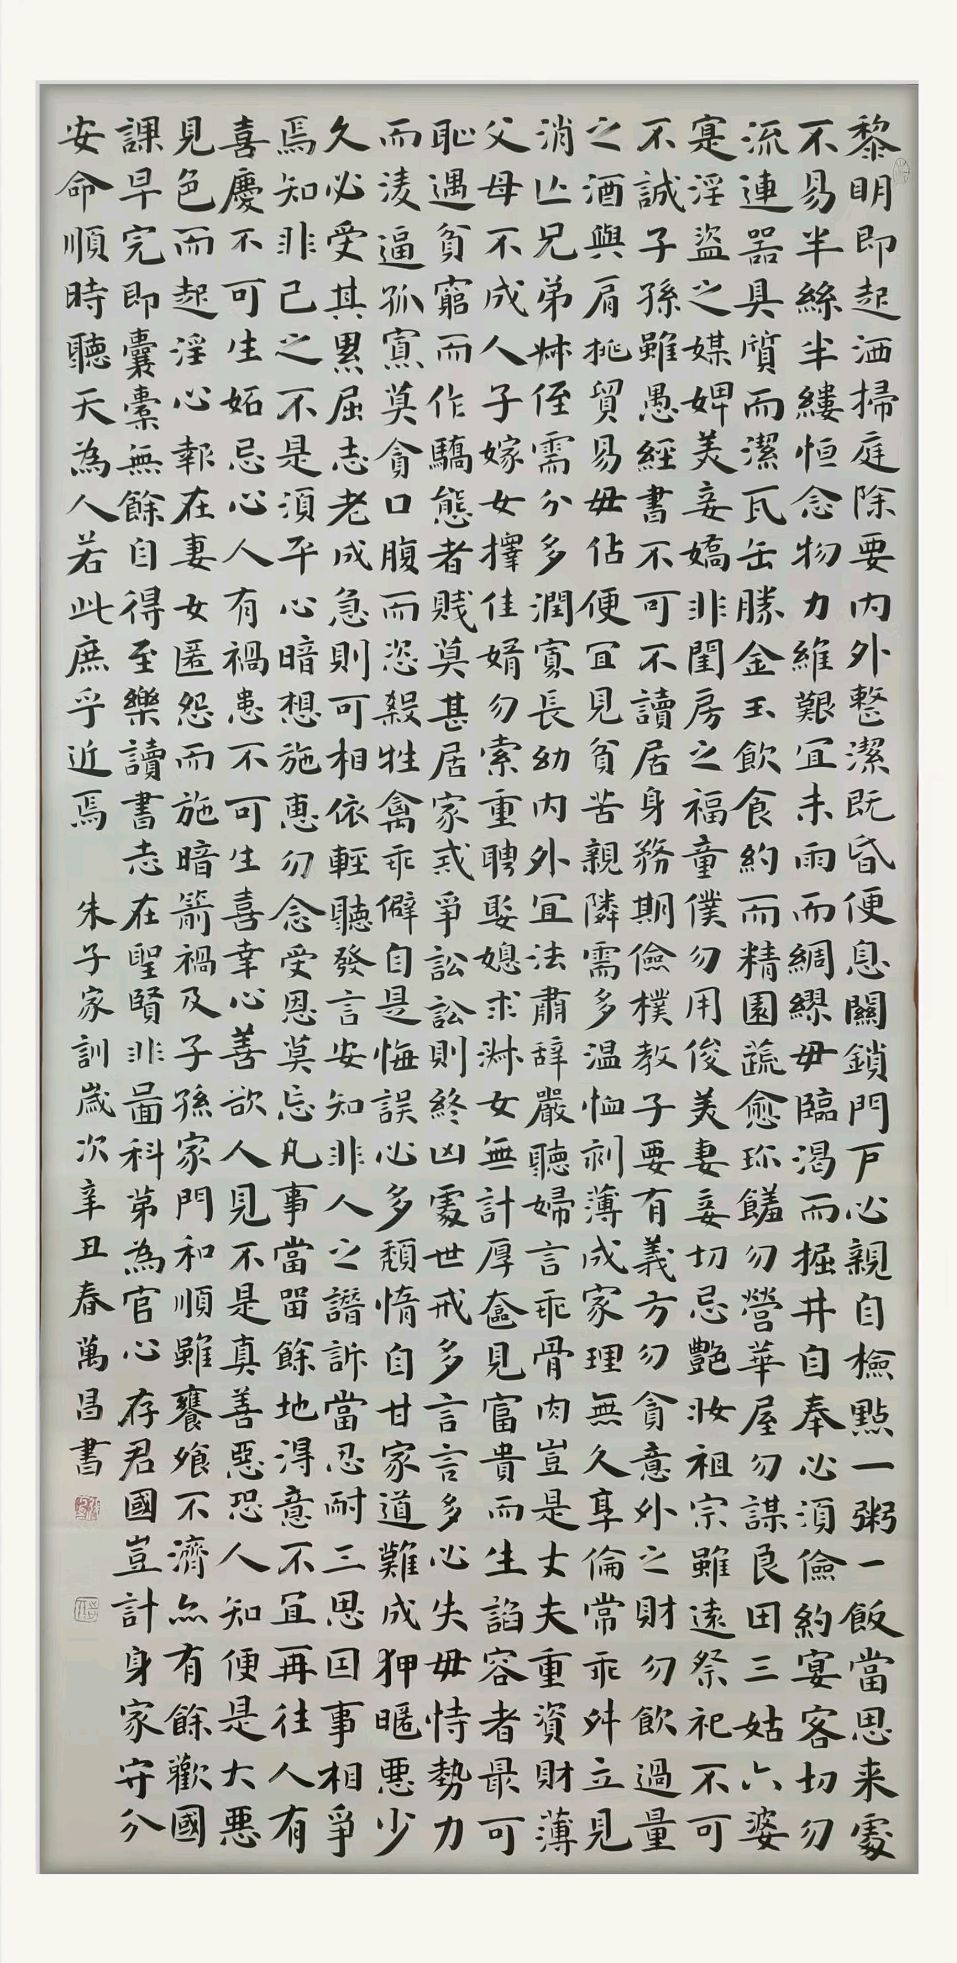 黎明即起洒掃庭除要内外整潔既昏便息關鎖門戶必親自檢點一粥一飯當思来處
不易半絲半縷恒念物力維艱宜未雨而綢繆毋臨渴而掘井自奉必須儉約宴客切勿
流連器具質而潔瓦缶勝金玉飲食約而精園蔬愈珎饈勿營華屋勿謀良田三姑六婆
寔淫盗之媒婢美妾嬌非閨房之福童僕勿用俊美妻妾切忌艷妝祖宗雖遠祭祀不可
不誠子孫雖愚經書不可不讀居身務期儉樸教子要有義方勿貪意外之財勿飲過量
之酒與肩挑貿易毋佔便宜見貧苦親隣需多温恤刻薄成家理無久享倫常乖舛立見
消亾兄弟叔侄需分多潤寡長幼内外宜法肅辞嚴聽婦言乖骨肉豈是丈夫重資財薄
父母不成人子嫁女擇佳婿勿索重聘娶媳求淑女無計厚奩見富貴而生諂容者最可
恥遇貧窮而作驕態者賤莫甚居家戒爭訟訟則終凶處世戒多言言多必失毋恃勢力
而淩逼孤寡莫貪口腹而恣殺牲禽乖僻自是悔誤必多頹惰自甘家道難成狎暱悪少
久必受其累屈志老成急則可相依輕聽發言安知非人之譖訴當忍耐三思因事相爭
焉知非己之不是須平心暗想施惠勿念受恩莫忘凡事當留餘地得意不宜再往人有
喜慶不可生妬忌心人有禍患不可生喜幸心善欲人見不是真善惡恐人知便是大悪
見色而起淫心報在妻女匿怨而施暗箭禍及子孫家門和順雖饔飧不濟亦有餘歡國
課早完即囊橐無餘自得至樂讀書志在聖賢非啚科第為官心存君國豈計身家守分
安命順時聽天為人若此庶乎近焉 朱子家訓歲次辛丑春萬昌書